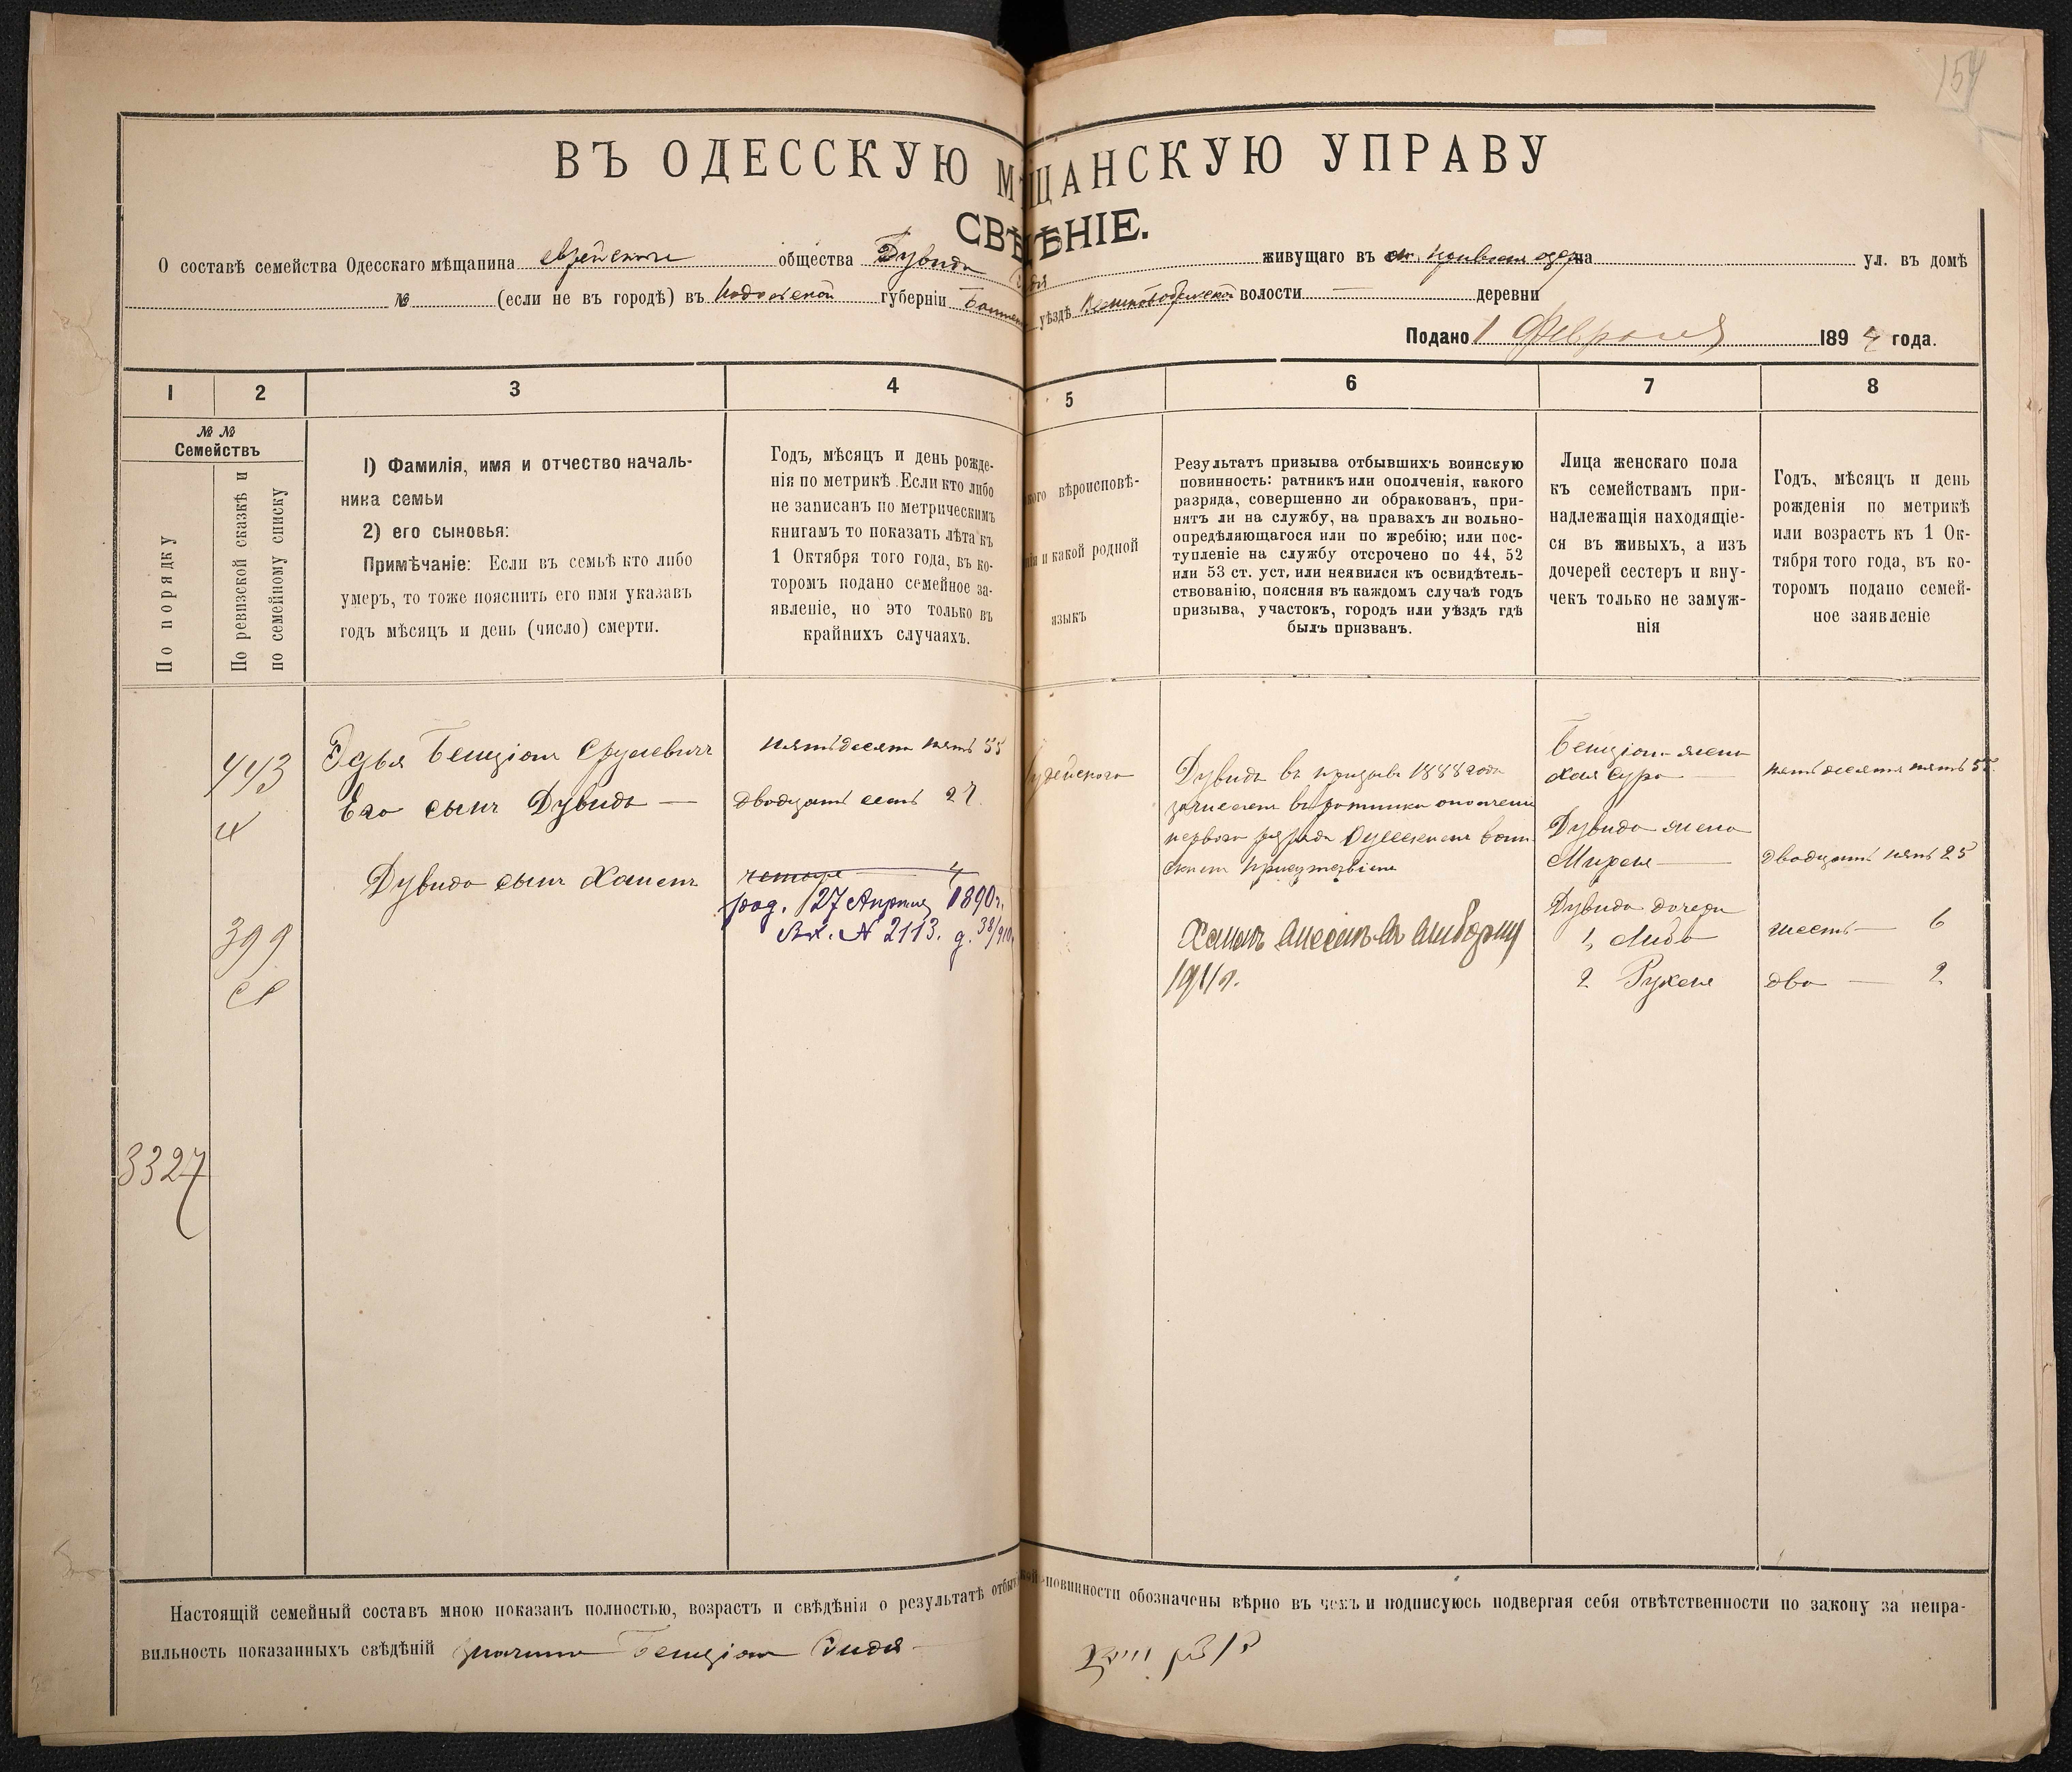 154
ВЪ ОДЕССКУЮ МЩАНСКУЮ УПРАВУ
СВѢДѢНІЕ.
О составѣ семейства Одесскаго мѣщанина еврейскаго общества Дувида живущаго въ ст. ул. въ домѣ
№ (если не въ городѣ) въ Подольской губерніи уѣздѣ волости — деревни
Подано 1 Февраля 1894 года.
1 2 3 4 5 6 7 8
№ №
Семействъ
По порядку
По ревизской сказкѣ и
по семейному списку
1) Фамилія, имя и отчество началь-
ника семьи
2) его сыновья:
Примѣчаніе: Если въ семьѣ кто либо
умеръ, то тоже пояснить его имя указавъ
годъ мѣсяцъ и день (число) смерти.
Годъ, мѣсяцъ и день рожде-
нія по метрикѣ. Если кто либо
не записанъ по метрическимъ
книгамъ то показать лѣта къ
1 Октября того года, въ ко-
торомъ подано семейное за-
явленіе, но это только въ
крайнихъ случаяхъ.
кого вѣроисповѣ-
нія и какой родной
языкъ
Результатъ призыва отбывшихъ воинскую
повинность: ратникъ или ополченія, какого
разряда, совершенно ли обракованъ, при-
нятъ ли на службу, на правахъ ли вольно-
опредѣляющагося или по жребію; или пос-
тупленіе на службу отсрочено по 44, 52
или 53 ст. уст. или неявился къ освидѣтель-
ствованію, поясняя въ каждомъ случаѣ годъ
призыва, участокъ, городъ или уѣздъ гдѣ
былъ призванъ.
Лица женскаго пола
къ семействамъ при-
надлежащія находящіе-
ся въ живыхъ, а изъ
дочерей сестеръ и вну-
чекъ только не замуж-
нія
Годъ, мѣсяцъ и день
рожденія по метрикѣ
или возрастъ къ 1 Ок-
тября того года, въ ко-
торомъ подано семей-
ное заявленіе
443
399
3327
Бенціонъ Срулевичъ
Его сынъ Дувидъ —
Дувида сынъ Ханенъ
пятьдесятъ пять 55
двадцать семь 27
четыре — 4
род. 27 Апрѣля 1890 г.
Вх. № 2113. д. 38/910
Іудейскаго
Дувидъ въ призывъ 1888 года
зачисленъ въ ратники ополченія
перваго разряда воин-
скимъ присутствіемъ
1911 г.
Бенціона жена
Хая Сура —
Дувида жена
Миреля —
Дувида дочери
1, Либа
2 Рухеля
пятьдесятъ пять 55
двадцать пять 25
шесть — 6
два — 2
Настоящій семейный составъ мною показанъ полностью, возрастъ и свѣдѣнія о результатѣ отбыт кой повинности обозначены вѣрно въ чемъ и подписуюсь подвергая себя отвѣтственности по закону за непра-
вильность показанныхъ свѣдѣній Бенціонъ